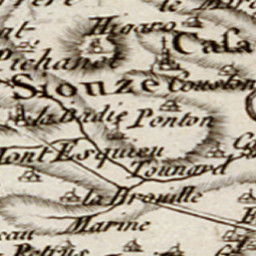 le
Higaro
Casa
Pichanot
Sionze
Couston
la Badie
Ponton
Mont Esquieu
Tounard
la Brouille
Marine
eau
Petrus